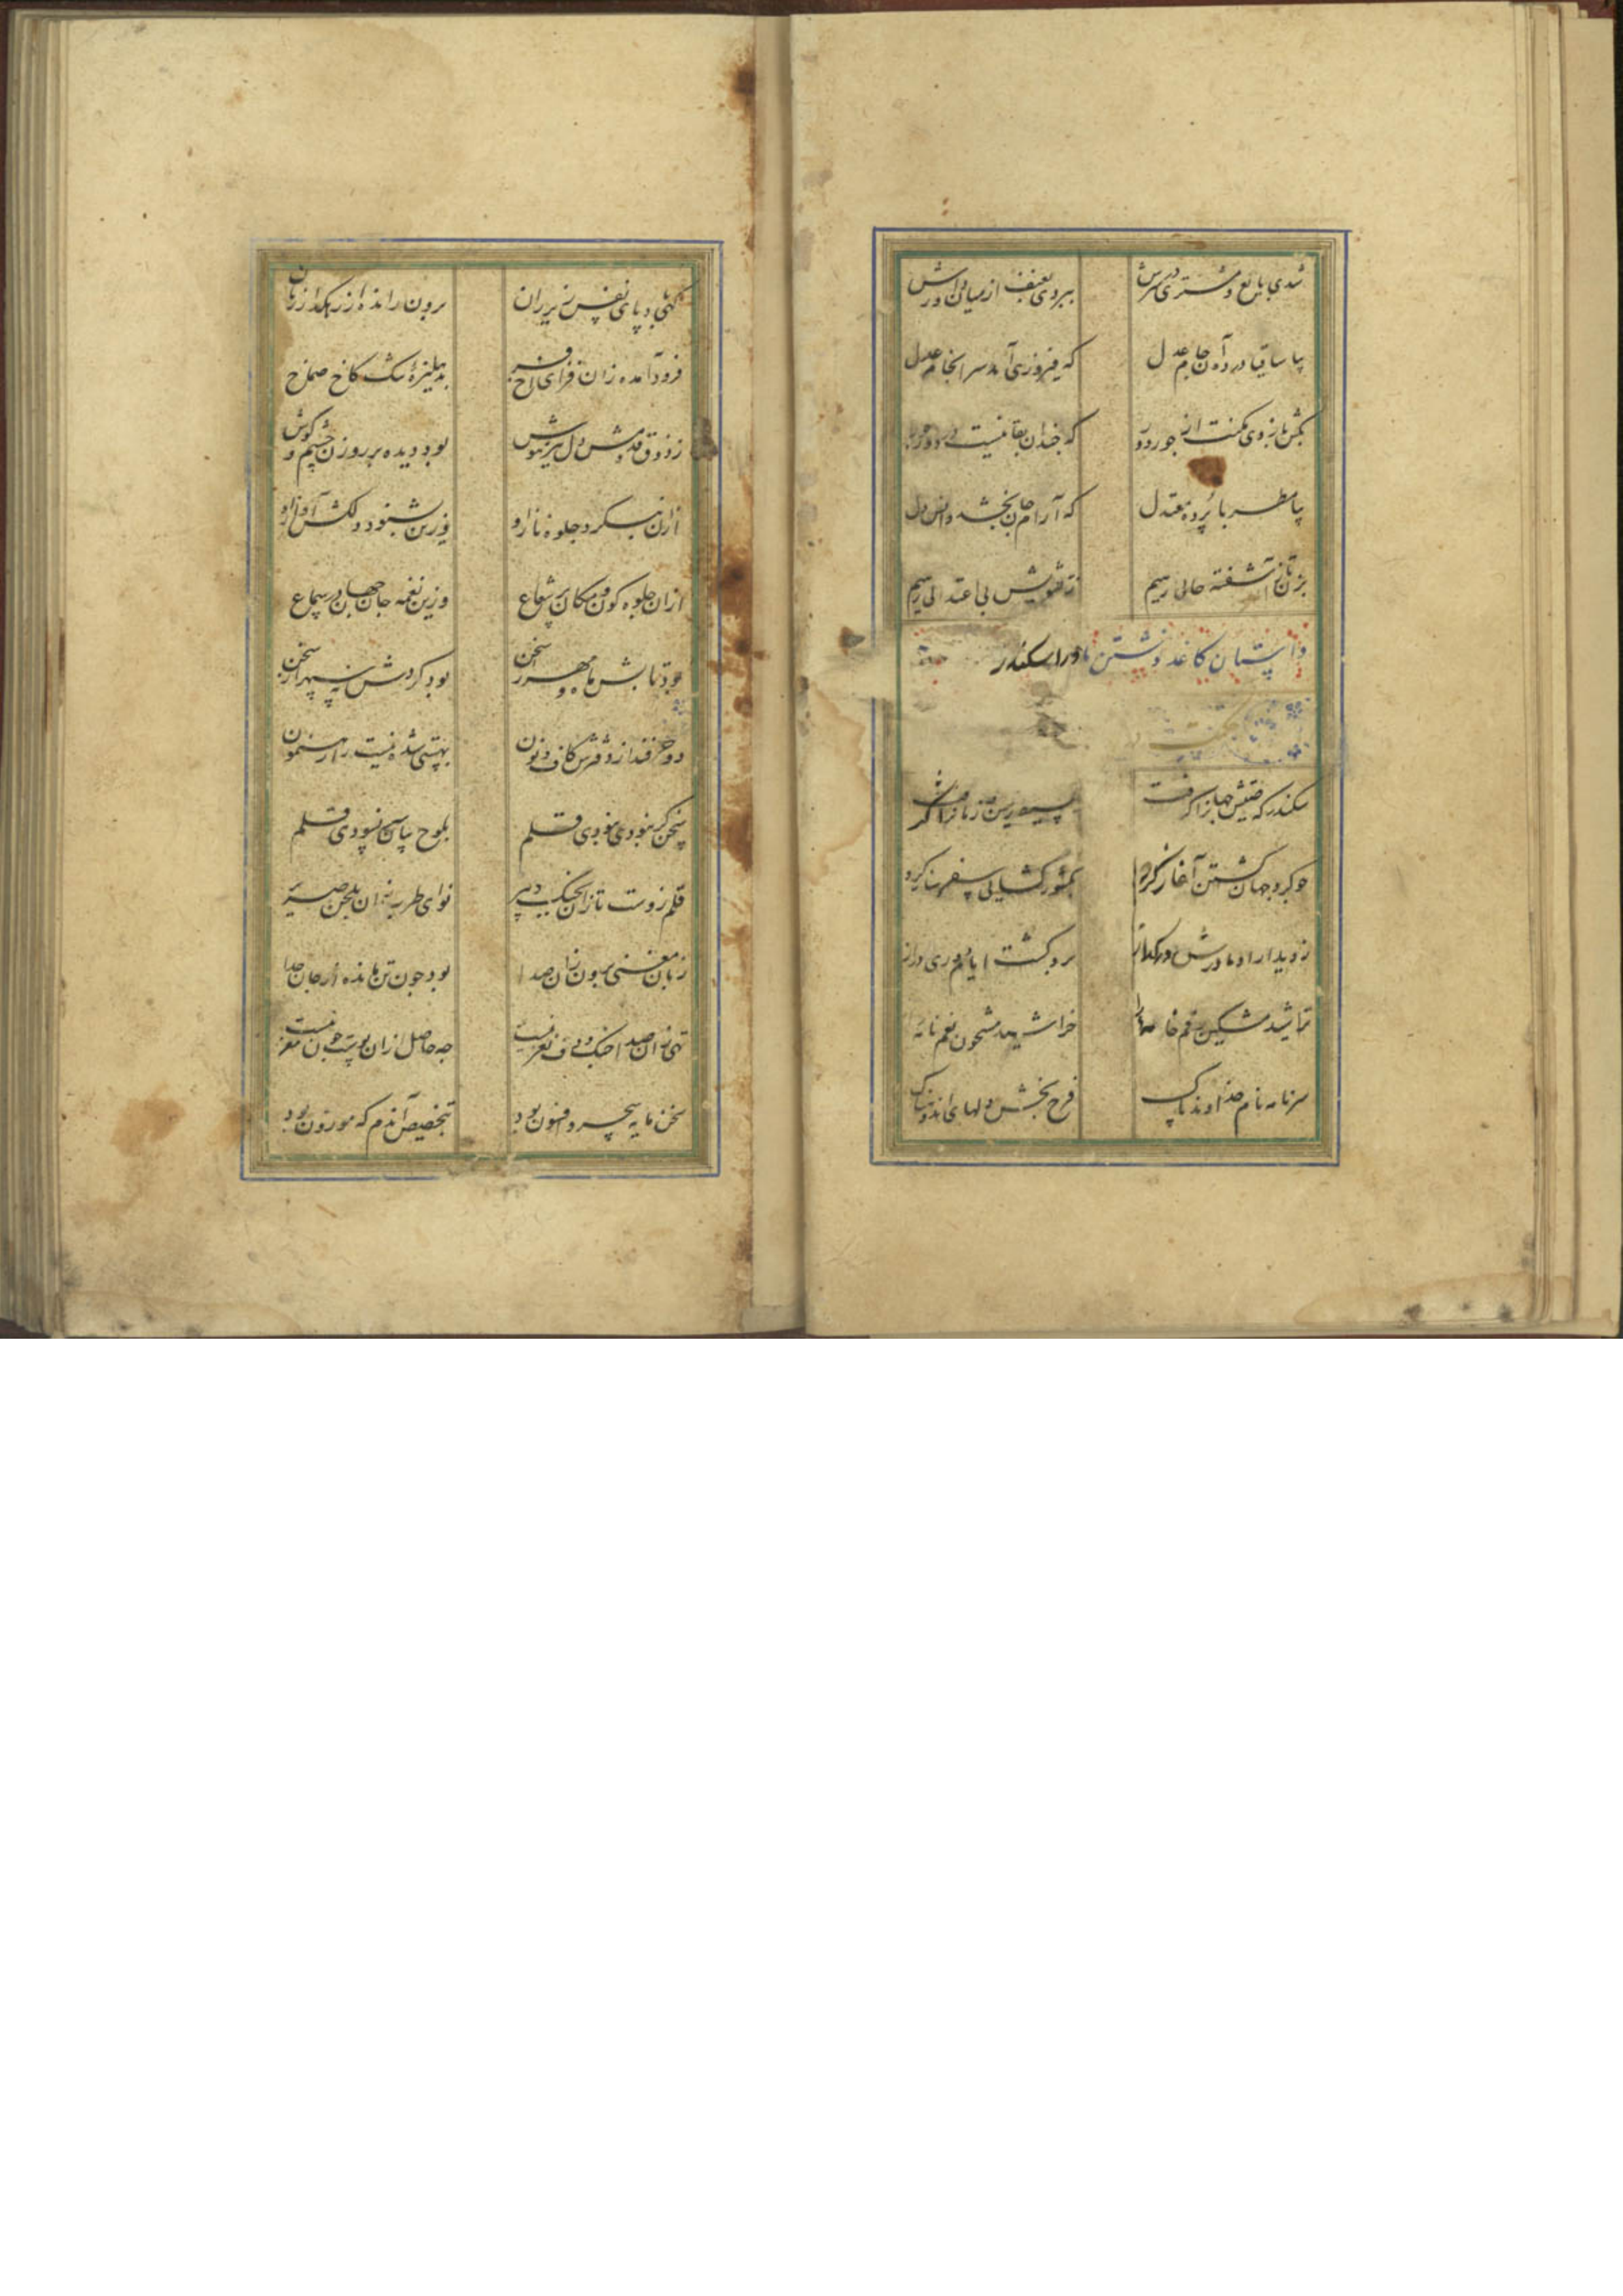 شدی بایع و مشتری در سرش ببردی بعنف از میان داورش
بیا ساقیا در ده آن جام عدل که فیروزی آمد سرانجام عدل
بکش بازوی مکنت از جور دور که چندان بقا نیست در دور جور
بیا مطربا پرده معتدل که آرام جان بخشد و انس دل
بزن تا ز آشفته حالی رهیم ز تشویش بی اعتدالی رهیم
داستان کاغذ نوشتن مادر اسکندر
سکندر که صیتش جهان را گرفت
چو گرد جهان گشتن آغاز کرد بکشور گشایی سفر ساز کرد
ز دیدار او مادرش ماند باز برو گشت ایام دوری دراز
تراشید مشکین رقم خامه را
سر نامه نام خداوند پاک فرح بخش دلهای اندوهناک
گهی باد پای نفس زیر ران برون رانده از رهگذار زبان
فرود آمده زان فضای فراخ بدهلیزه تنگ کاخ صماخ
ز ذوق قدومش دل تیز هوش بود دیده بر روزن چشم و گوش
ازان ننگرد جلوه ناز او وزین نشنود دلکش آواز او
ازان جلوه کون و مکان پر شعاع وزین نغمه جان جهان در سماع
بود تابش ماه و مهر از سخن بود گردش نه سپهر از سخن
دو حرفند از دفترش کاف و نون بهستی شده نیست را رهنمون
سخن گر نبودی نبودی قلم بلوح بیان کی نسودی قلم
قلم زوست تازان بچنگ دبیر نوای طرب زان بلحن صریر
زبان مغنی برون زان صدا بود چون تن مانده از جان جدا
تهی زان صدا چنگ و دف نغز نیست چه حاصل ازان پوست چون مغز نیست
سخن مایه سحر و افسون بود بتخصیص آندم که موزون بود